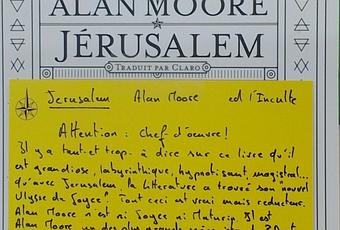 ALAN MOORE
JÉRUSALEM
TRADUIT PAR CLARO
Jerusalem Alan Moore ed l'Inculte
Attention : chef d'oeuvre !
Il y a tant et trop à dire sur ce livre qu'il
est grandiose, labyrinthique, hypnotisant, magistral...
qu'avec Jerusalem, la littérature a trouvé son nouvel
Ulysse de Joyce ! Tout ceci est vrai mais réducteur.
Alan Moore n'est ni Joyce ni Maturin. Il est
Alan Moore un des plus grands